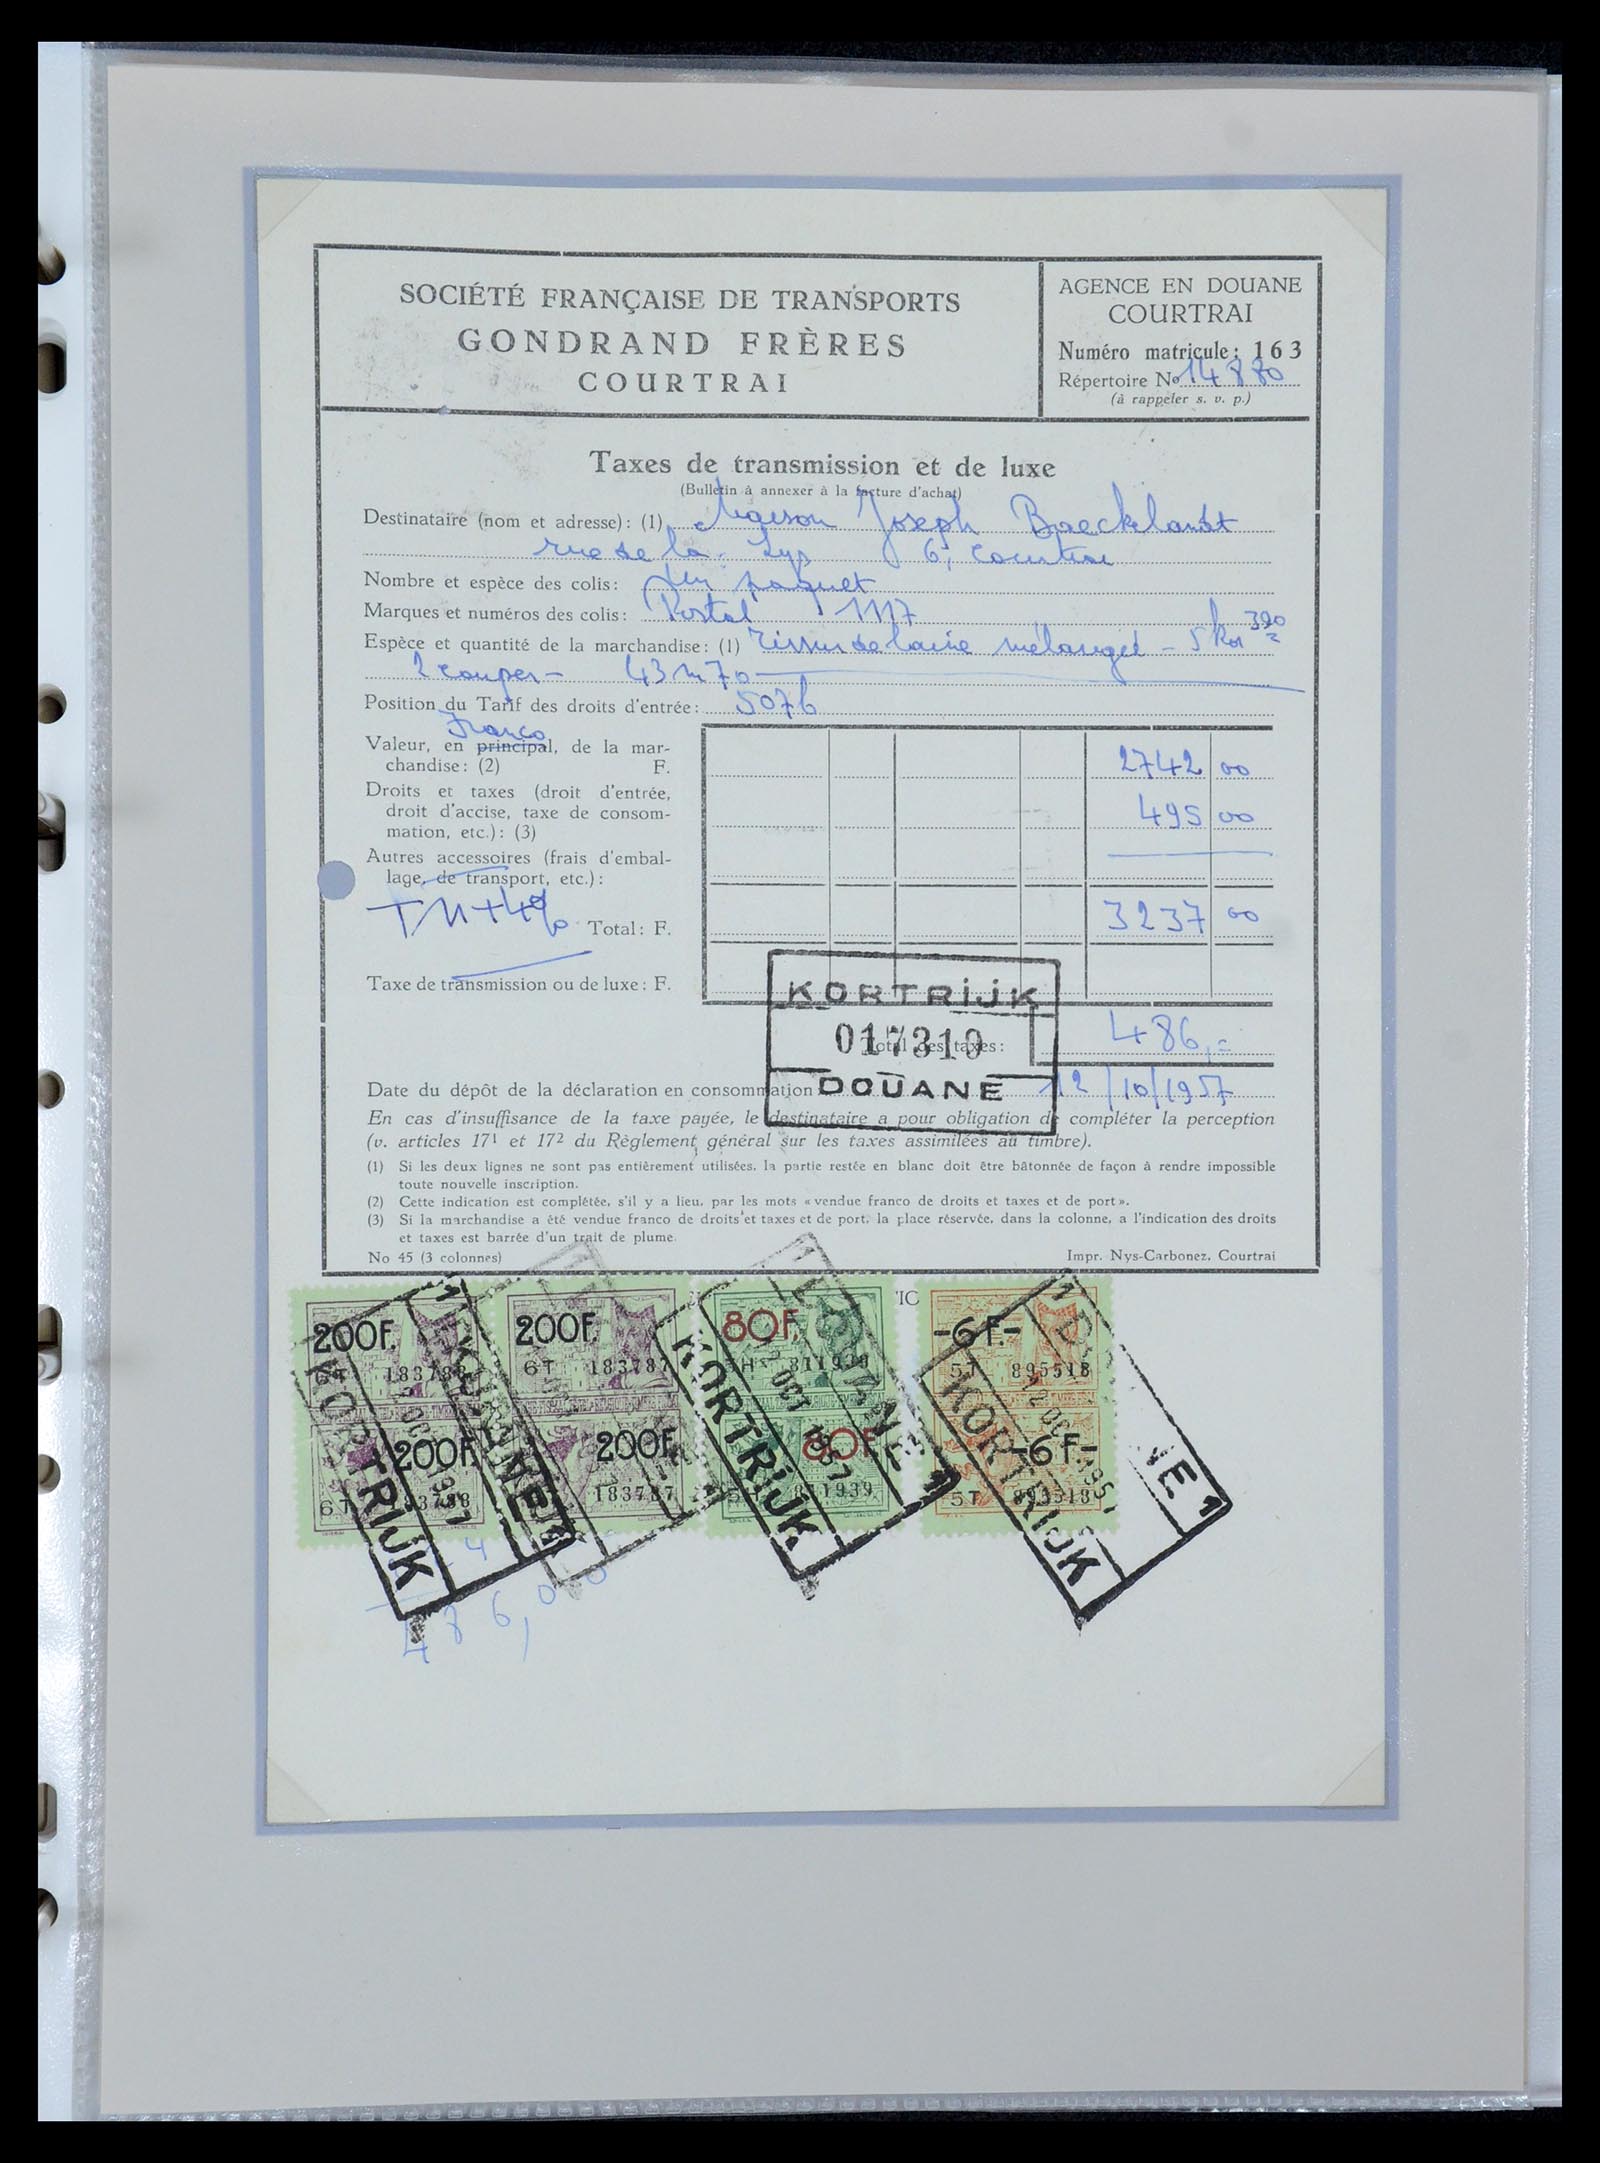 SOCIÉTÉ FRANÇAISE DE TRANSPORTS
GONDRAND FRÈRES
COURTRAI
AGENCE EN DOUANE
COURTRAI
Numéro matricule: 163
Répertoire No 14880
(à rappeler s. v. p.)
Taxes de transmission et de luxe
(Bulletin à annexer à la facture d'achat)
Destinataire (nom et adresse): (1) Maison Joseph Baecklandt
rue de la Lys 6, Courtrai
Nombre et espèce des colis: Un paquet
Marques et numéros des colis: Postal 1117
Espèce et quantité de la marchandise: (1) Tissus de laine mélangée - 5 kos 390
2 coupes - 43 m 70
Position du Tarif des droits d'entrée: 507b
Franco
Valeur, en principal, de la mar-
chandise: (2) F. 2742 00
Droits et taxes (droit d'entrée,
droit d'accise, taxe de consom-
mation, etc.): (3) 495 00
Autres accessoires (frais d'embal-
lage, de transport, etc.):
+4% Total: F. 3237 00
Taxe de transmission ou de luxe: F.
KORTRIJK
017310
DOUANE
Total des taxes: 486,=
Date du dépôt de la déclaration en consommation 12/10/1957
En cas d'insuffisance de la taxe payée, le destinataire a pour obligation de compléter la perception
(v. articles 17¹ et 17² du Règlement général sur les taxes assimilées au timbre).
(1) Si les deux lignes ne sont pas entièrement utilisées, la partie restée en blanc doit être bâtonnée de façon à rendre impossible
toute nouvelle inscription.
(2) Cette indication est complétée, s'il y a lieu, par les mots « vendue franco de droits et taxes et de port ».
(3) Si la marchandise a été vendue franco de droits et taxes et de port, la place réservée, dans la colonne, a l'indication des droits
et taxes est barrée d'un trait de plume.
No 45 (3 colonnes) Impr. Nys-Carbonez, Courtrai
200F. 200F. 80F. -6F-
6T 183788 6T 183787 811939 5T 895518
200F. 200F. 80F. -6F-
6T 183788 183787 811939 5T 895518
KORTRIJK
KORTRIJK
KORTRIJK
12 OCT 1957
486,00